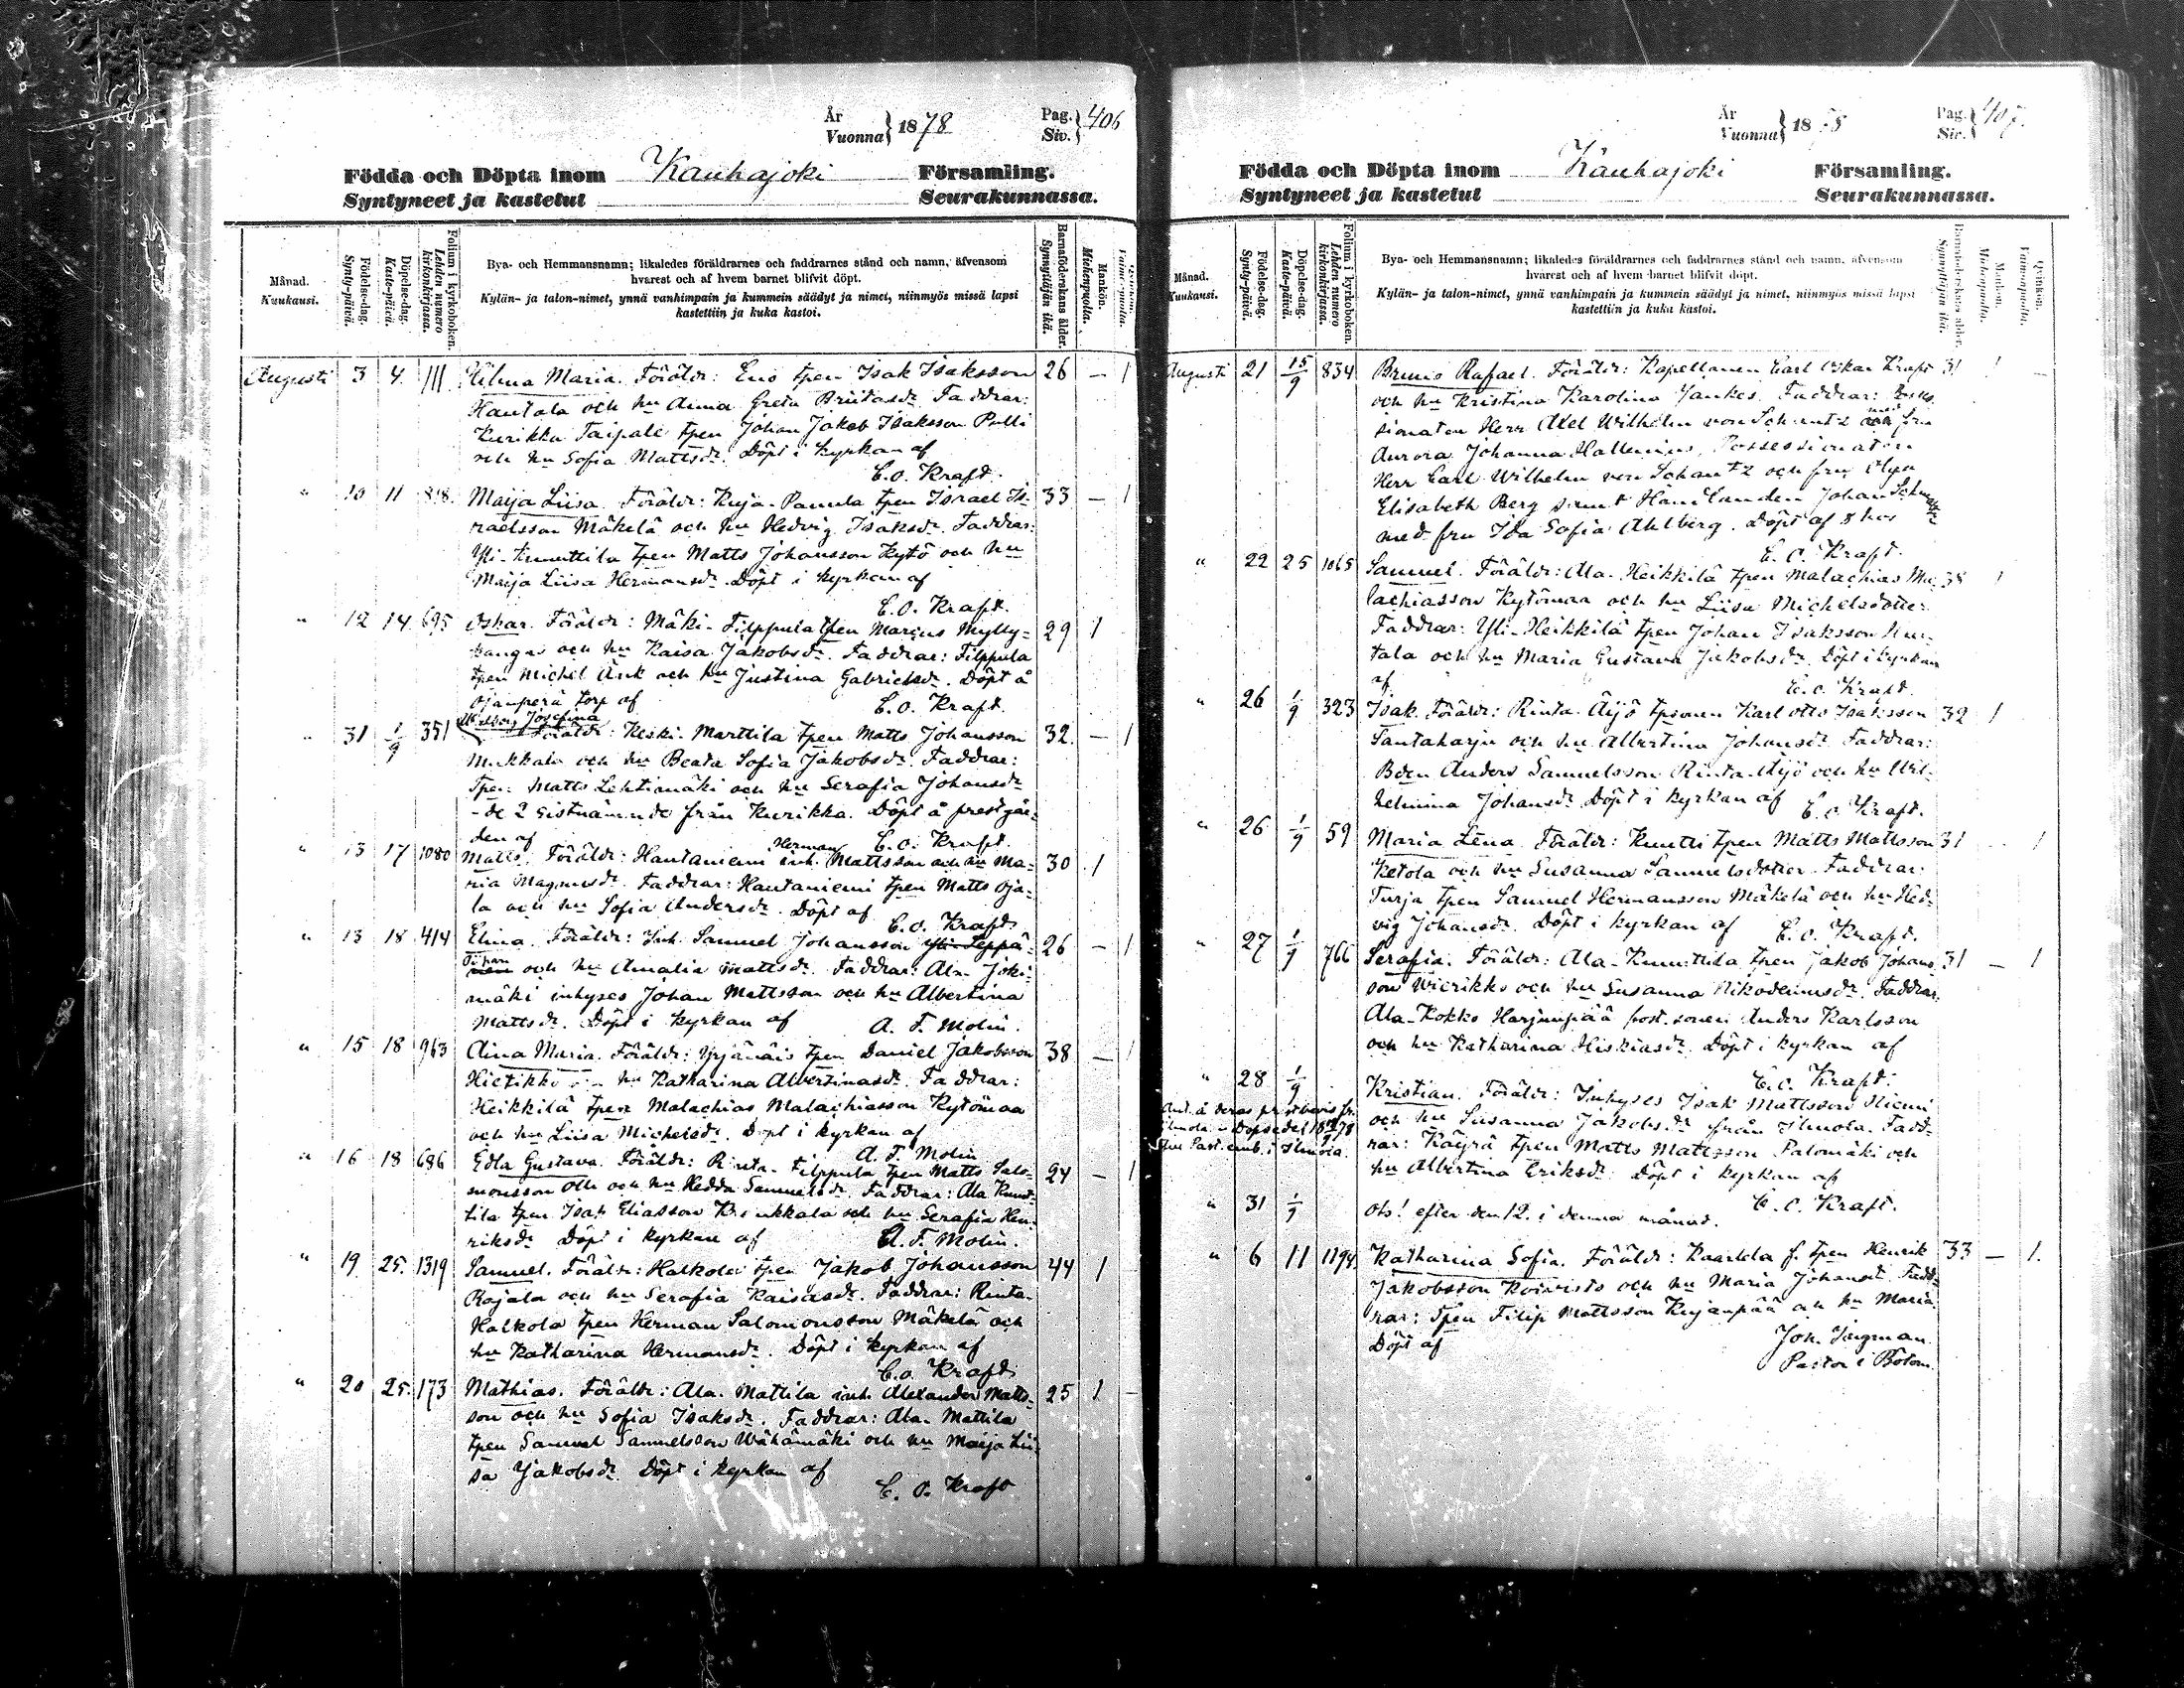 År
Vuonna } 1878
Pag.
Siv. } 406
Födda och Döpta inom Kauhajoki Församling.
Syntyneet ja kastetut Seurakunnassa.
Månad.
Kuukausi.
Födelse-dag.
Synty-päivä.
Döpelse-dag.
Kaste-päivä.
Folium i kyrkoboken.
Lehden numero kirkonkirjassa.
Bya- och Hemmansnamn; likaledes föräldrarnes och faddrarnes stånd och namn, äfvensom
hvarest och af hvem barnet blifvit döpt.
Kylän- ja talon-nimet, ynnä vanhimpain ja kummein säädyt ja nimet, niinmyös missä lapsi
kastettiin ja kuka kastoi.
Barnaföderskans ålder.
Synnyttäjän ikä.
Mankön.
Miehenpuolta.
Augusti 3 4. 111 Hilma Maria. Föräldr: Eno tpen Isak Isaksson 26 — 1
Hautala och hu Anna Greta Britasdr. Faddrar:
Kurikka Taipale tpen Johan Jakob Isaksson Pulli
och hu Sofia Mattsdr. Döpt i kyrkan af
C.O. Kraft.
" 10 11 818. Maija Liisa. Föräldr: Kujä-Pannula tpen Israel Is- 33 — 1
raelsson Mäkelä och hu Hedvig Isaksdr. Faddrar:
Yli-Knuuttila tpen Matts Johansson Kytö och hu
Maija Liisa Hermansdr. Döpt i kyrkan af
C.O. Kraft.
" 12 14 695 Oskar. Föräldr: Mäki-Filppula tpen Marcus Mylly- 29 1
kangas och hu Kaisa Jakobsdr. Faddrar: Filppula
tpen Michel Änk och hu Justina Gabrielsdr. Döpt å
Ojanperä torp af C.O. Kraft.
Josefina
" 31 1/9 351 Föräldr: Keski-Marttila tpen Matts Johansson 32. — 1
Mukkala och hu Beata Sofia Jakobsdr. Faddrar:
Tpen Matts Lehtimäki och hu Serafia Johansdr
- de 2 sistnämnde från Kurikka. Döpt å prestgår-
den af C.O. Kraft.
Herman
" 13 17 1080 Matts. Föräldr: Hautaniemi inh. Mattsson och hu Ma- 30 1
ria Magnusdr. Faddrar: Hautaniemi tpen Matts Oja-
la och hu Sofia Andersdr. Döpt af C.O. Kraft.
" 13 18 414 Elina. Föräldr: Inh. Samuel Johansson Yli-Leppä- 26 — 1
och hu Amalia Mattsdr. Faddrar: Ala-Joki-
mäki inhyses Johan Mattsson och hu Albertina
Mattsdr. Döpt i kyrkan af A. F. Molin.
" 15 18 963 Aina Maria. Föräldr: Yrjänäis tpen Daniel Jakobsson 38 — 1
Hietikko och hu Katharina Albertinasdr. Faddrar:
Heikkilä tpen Malachias Malachiasson Kytömaa
och hu Liisa Michelsdr. Döpt i kyrkan af
A. F. Molin
" 16 18 686 Edla Gustava. Föräldr: Rinta-Filppula tpen Matts Salo- 24 — 1
monsson Olli och hu Hedda Samuelsdr. Faddrar: Ala Knuut-
tila tpen Isak Eliasson Kriukkala och hu Serafia Hen-
riksdr Döpt i kyrkan af A. F. Molin.
" 19 25. 1319 Samuel. Föräldr: Halkola tpen Jakob Johansson 44 1
Rajala och hu Serafia Kaisasdr. Faddrar: Rinta-
Halkola tpen Herman Salomonsson Mäkelä och
hu Katharina Hermansdr. Döpt i kyrkan af
C.O. Kraft.
" 20 25. 173 Mathias. Föräldr: Ala-Mattila inh. Alexander Matts- 25 1 -
son och hu Sofia Isaksdr. Faddrar: Ala-Mattila
tpen Samuel Samuelsson Wähämäki och hu Maija Lii-
sa Jakobsdr. Döpt i kyrkan af
C. O. Kraft
År
Vuonna } 1878
Pag.
Siv. } 407.
Födda och Döpta inom Kauhajoki Församling.
Syntyneet ja kastetut Seurakunnassa.
Månad.
Kuukausi.
Födelse-dag.
Synty-päivä.
Döpelse-dag.
Kaste-päivä.
Folium i kyrkoboken.
Lehden numero kirkonkirjassa.
Bya- och Hemmansnamn; likaledes föräldrarnes och faddrarnes stånd och namn, äfvensom
hvarest och af hvem barnet blifvit döpt.
Kylän- ja talon-nimet, ynnä vanhimpain ja kummein säädyt ja nimet, niinmyös missä lapsi
kastettiin ja kuka kastoi.
Barnaföderskans ålder.
Synnyttäjän ikä.
Mankön.
Miehenpuolta.
Qvinkön.
Vaimonpuolta.
Augusti 21 15/9 834 Bruno Rafael. Föräldr: Kapellanen Carl Oskar Kraft 31 1 —
och hu Kristina Karolina Yankes. Faddrar: Posses-
sionaten Herr Axel Wilhelm von Schantz med fru
Aurora Johanna Hallenius, Possessionaten
Herr Carl Wilhelm von Schantz och fru Olga
Elisabeth Berg samt Handlanden Johan
med fru Ida Sofia Ahlberg. Döpt af
C. O. Kraft.
" 22 25 1065 Samuel. Föräldr: Ala-Heikkilä tpen Malachias Ma- 38 1
lachiasson Kytömaa och hu Liisa Michelsdotter.
Faddrar: Yli-Heikkilä tpen Johan Isaksson Hau-
tala och hu Maria Gustava Jakobsdr. Döpt i kyrkan
af C.O. Kraft.
" 26 1/9 323 Isak. Föräldr: Rinta-Äijö tpsonen Karl Otto Isaksson 32 1
Santaharju och hu Albertina Johansdr. Faddrar:
Bden Anders Samuelsson Rinta-Äijö och hu Wil-
helmina Johansdr Döpt i kyrkan af C.O. Kraft.
" 26 1/9 59 Maria Lena. Föräldr: Knutti tpen Matts Mattsson 31 1
Ketola och hu Susanna Samuelsdotter. Faddrar:
Turja tpen Samuel Hermansson Mäkelä och hu Hed-
vig Johansdr. Döpt i kyrkan af C. O. Kraft.
" 27 1/9 766 Serafia. Föräldr: Ala-Knuuttila tpen Jakob Johans- 31 — 1
son Wierikko och hu Susanna Nikodemusdr. Faddrar:
Ala-Kokko Harjunpää bost.sonen Anders Karlsson
och hu Katharina Hiskiasdr. Döpt i kyrkan af
C.O. Kraft.
" 28 1/9 Kristian. Föräldr: Inhyses Isak Mattsson Niemi
och hu Susanna Jakobsdr från Ilmola. Fadd-
rar: Käyrä tpen Matts Mattsson Palomäki och
hu Albertina Eriksdr. Döpt i kyrkan af
C. O. Kraft.
Ant. å deras prestbevis
Past. emb. i Ilmola.
" 31 1/9 Obs! efter den 12. i denna månad.
" 6 11 1194 Katharina Sofia. Föräldr: Kaarlela f. tpen Henrik 33 — 1.
Jakobsson Koivisto och hu Maria Johansdr. Fadd-
rar: Tpen Filip Mattsson Kujanpää och hu Maria
Döpt af Joh.
Pastor i Bötom.